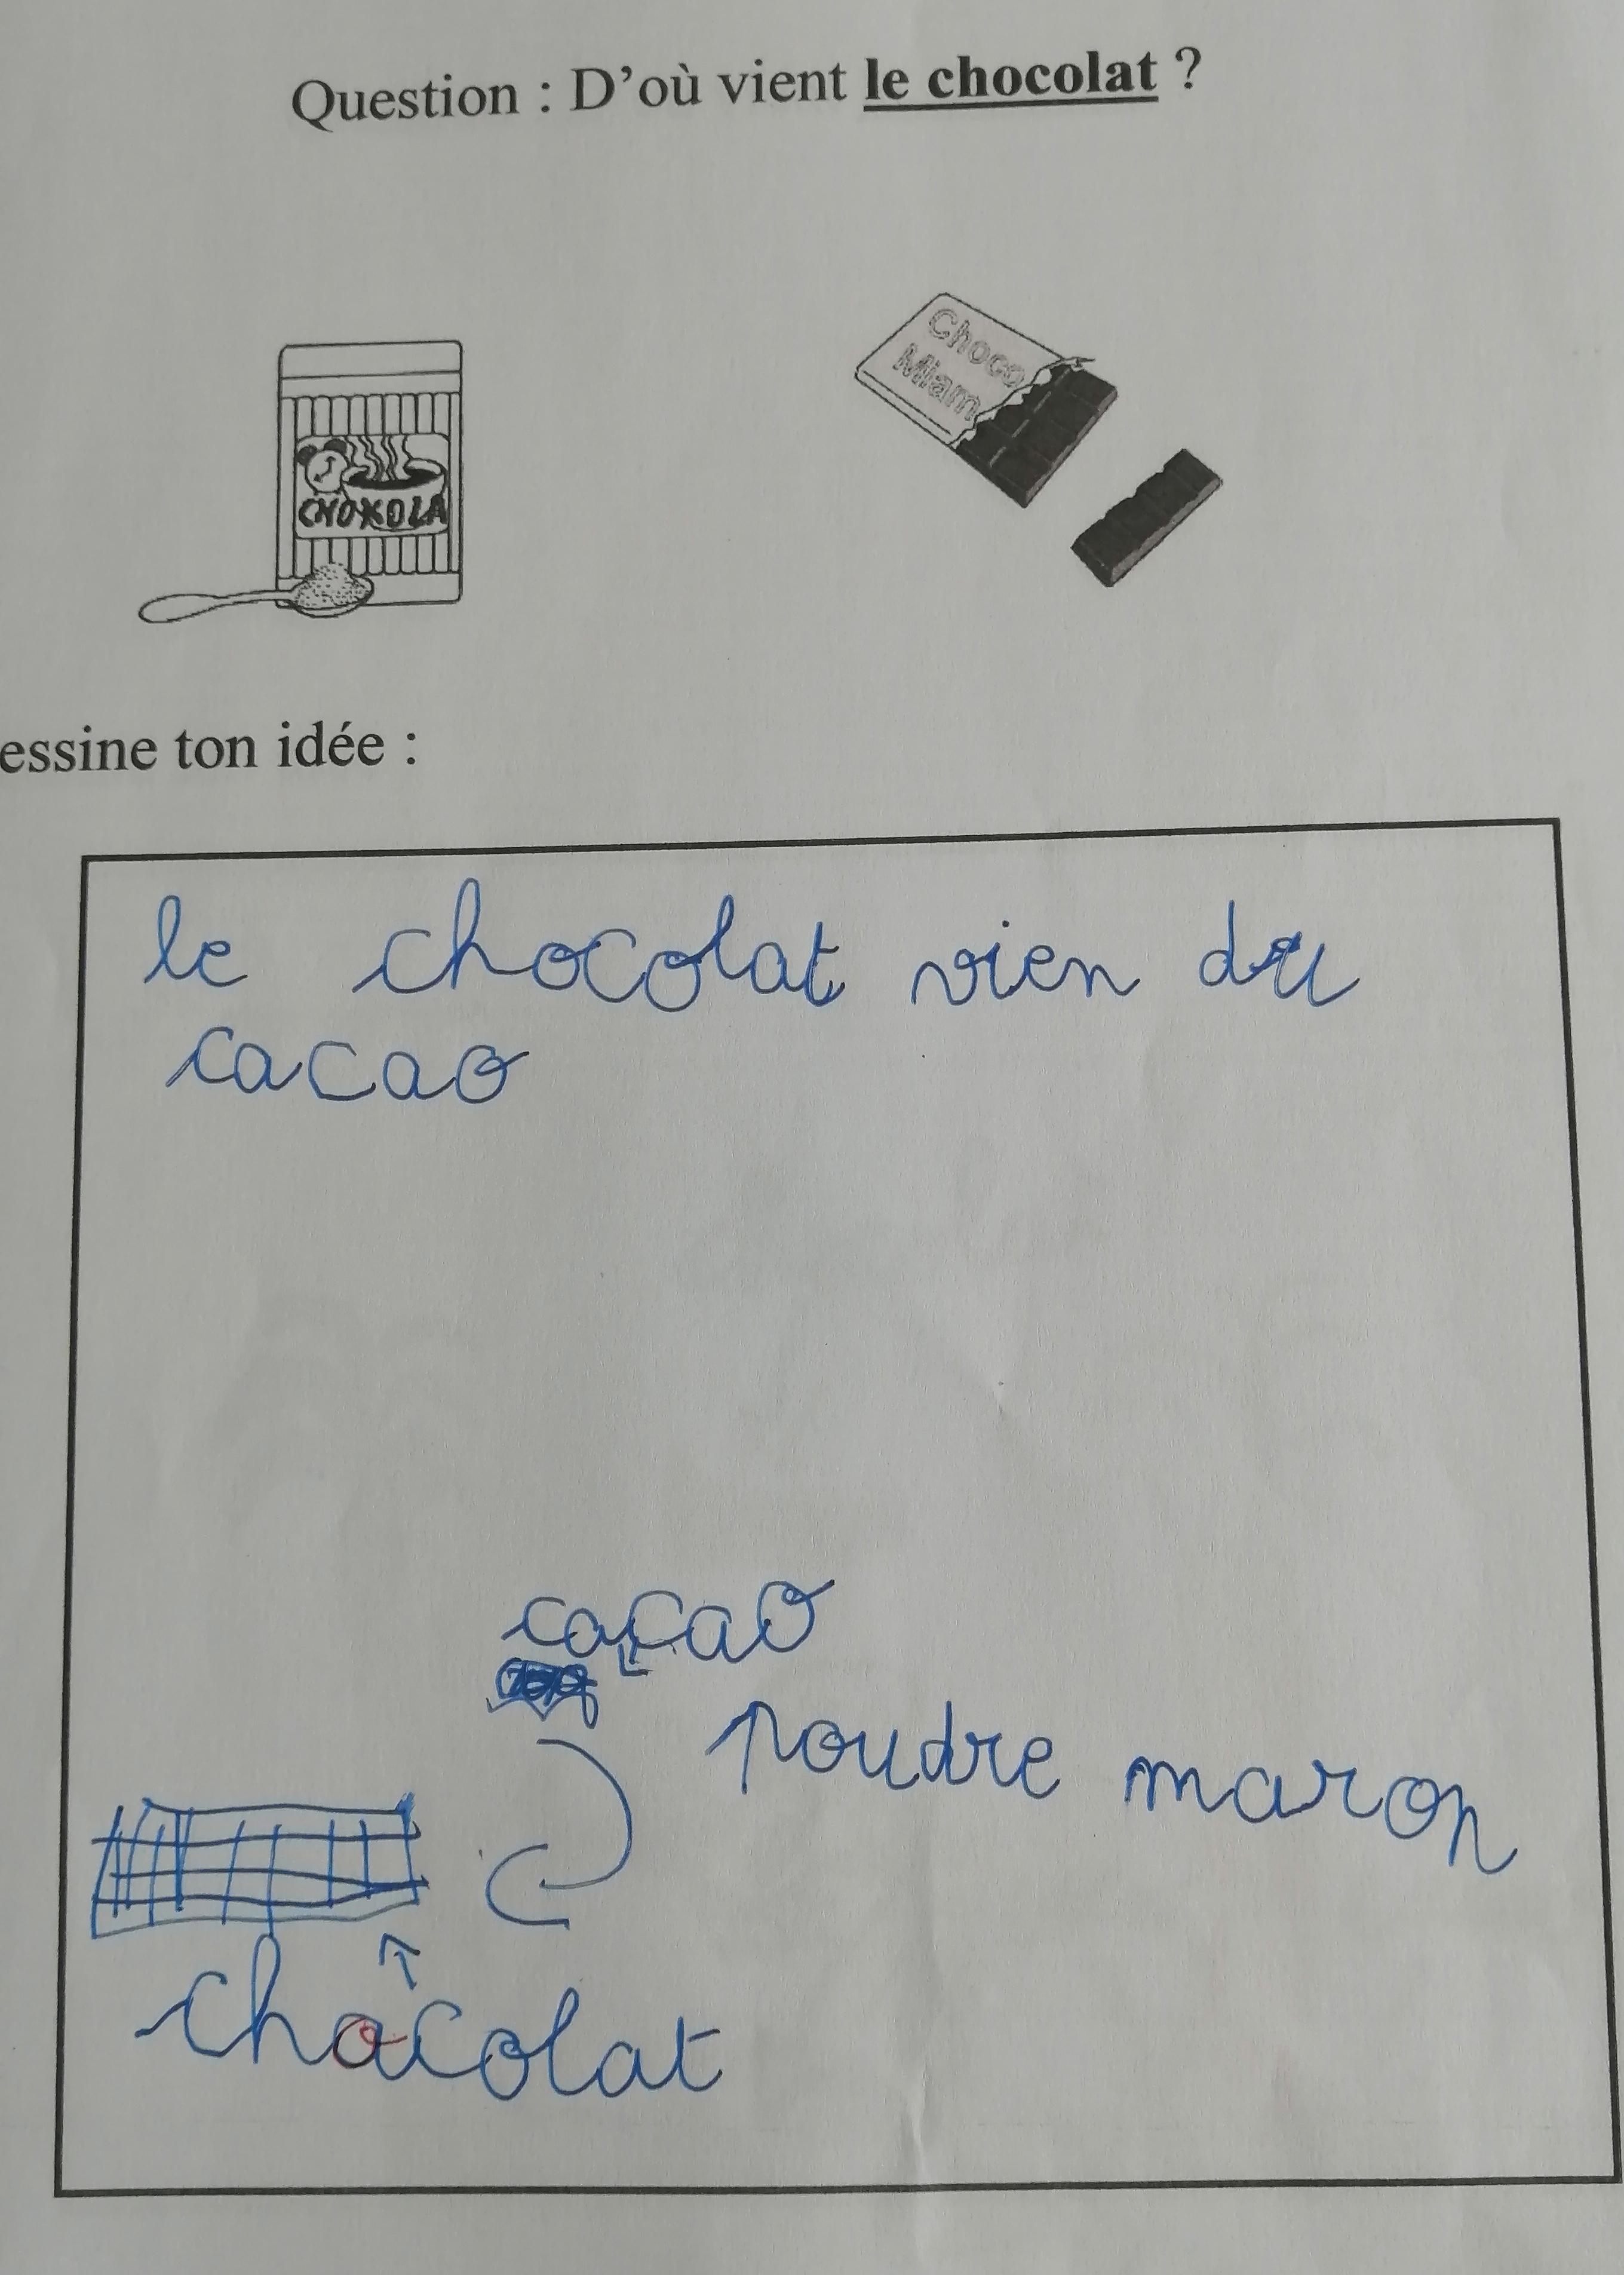 Question : D'où vient le chocolat ?
Choco
Miam
CHOKOLA
essine ton idée :
le chocolat vien du
cacao
cacao
poudre maron
chocolat